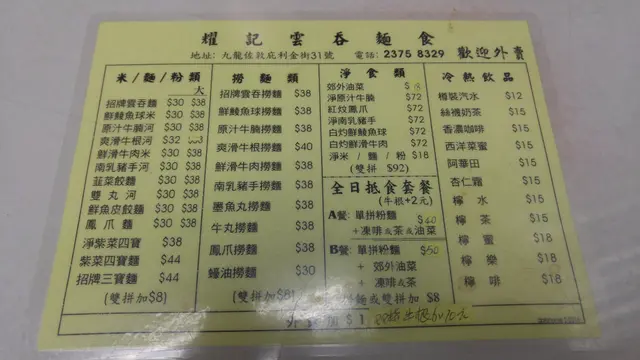 耀記雲吞麵食
地址: 九龍佐敦庇利金街31號 電話: 2375 8329 歡迎外賣
米/麵/粉類
大
招牌雲吞麵 $30 $38
鮮鯪魚球米 $30 $38
原汁牛腩河 $30 $38
爽滑牛根河 $32
鮮滑牛肉米 $30 $38
南乳豬手河 $30 $38
韮菜餃麵 $30 $38
雙丸河 $30 $38
鮮魚皮餃麵 $30 $38
鳳爪麵 $30 $38
淨紫菜四寶 $38
紫菜四寶麵 $44
招牌三寶麵 $44
(雙拼加$8)
撈麵類
招牌雲吞撈麵 $38
鮮鯪魚球撈麵 $38
原汁牛腩撈麵 $38
爽滑牛根撈麵 $40
鮮滑牛肉撈麵 $38
南乳豬手撈麵 $38
墨魚丸撈麵 $38
牛丸撈麵 $38
鳳爪撈麵 $38
蠔油撈麵 $30
(雙拼加$8)
淨食類
郊外油菜 $
淨原汁牛腩 $72
紅炆鳳爪 $72
淨南乳豬手 $72
白灼鯪魚球 $72
白灼鮮牛肉 $72
淨米/麵/粉 $18
(雙拼 $92)
全日抵食套餐
(牛根+2元)
A餐: 單拼粉麵 $40
+凍啡或茶或油菜
B餐: 單拼粉麵 $50
+ 郊外油菜
+ 凍啡或茶
麵或雙拼加 $8
冷熱飲品
樽裝汽水 $12
絲襪奶茶 $15
香濃咖啡 $15
西洋菜蜜 $15
阿華田 $15
杏仁霜 $15
檸水 $15
檸茶 $15
檸蜜 $18
檸樂 $18
檸啡 $18
外 $1